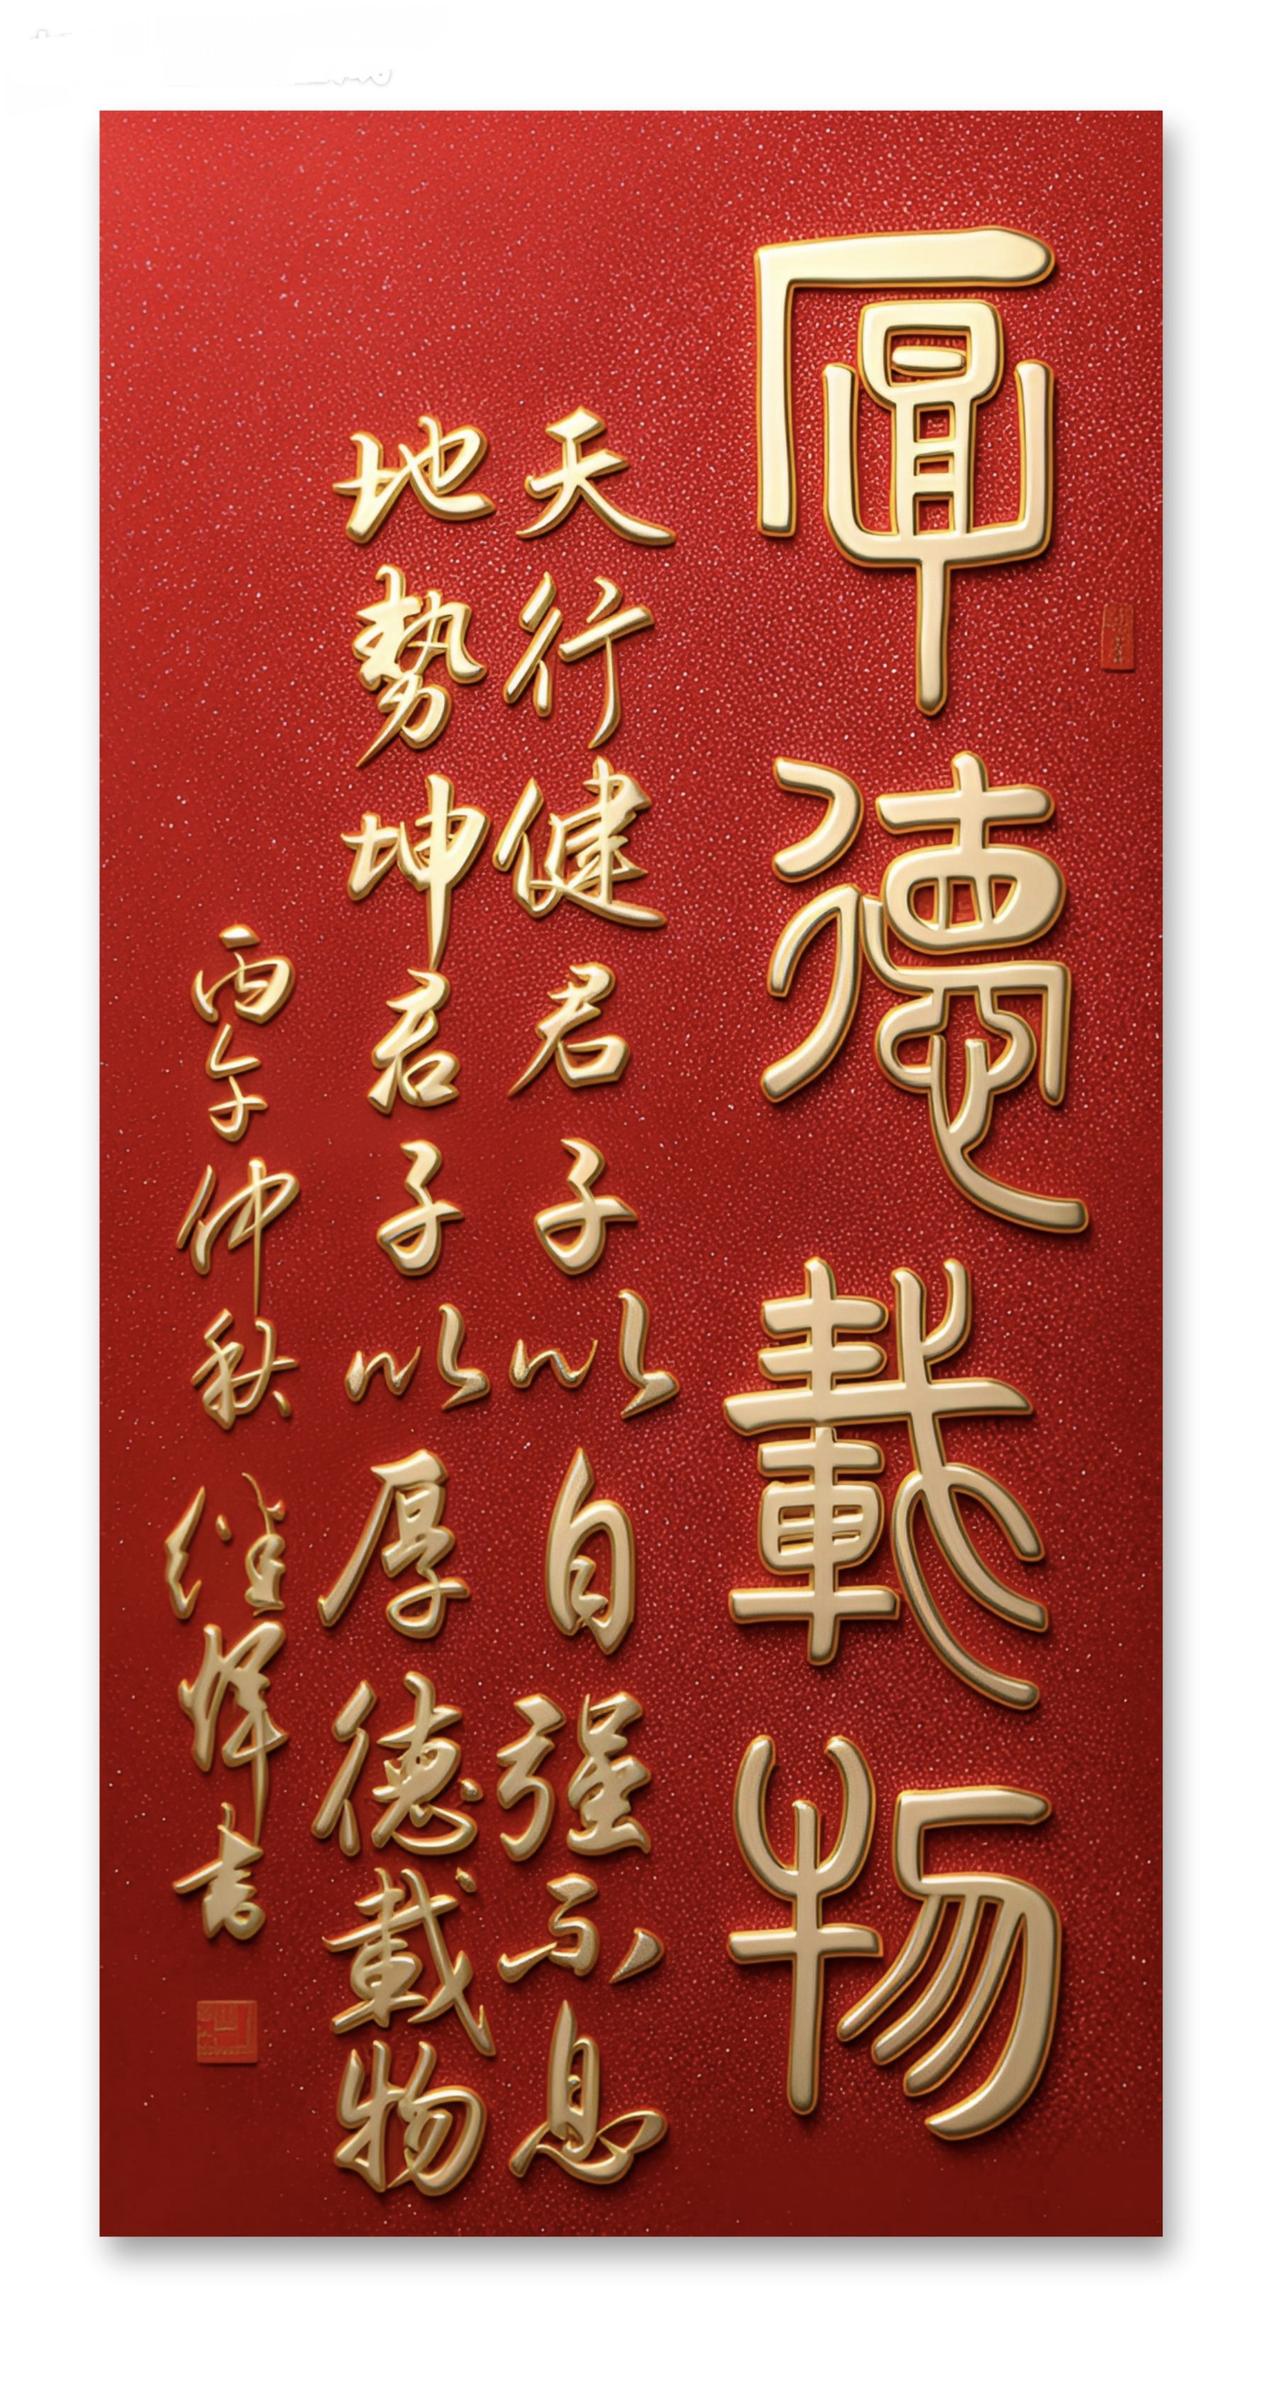 厚德載物
天行健君子以自强不息
地勢坤君子以厚德載物
丙午仲秋 继辉书